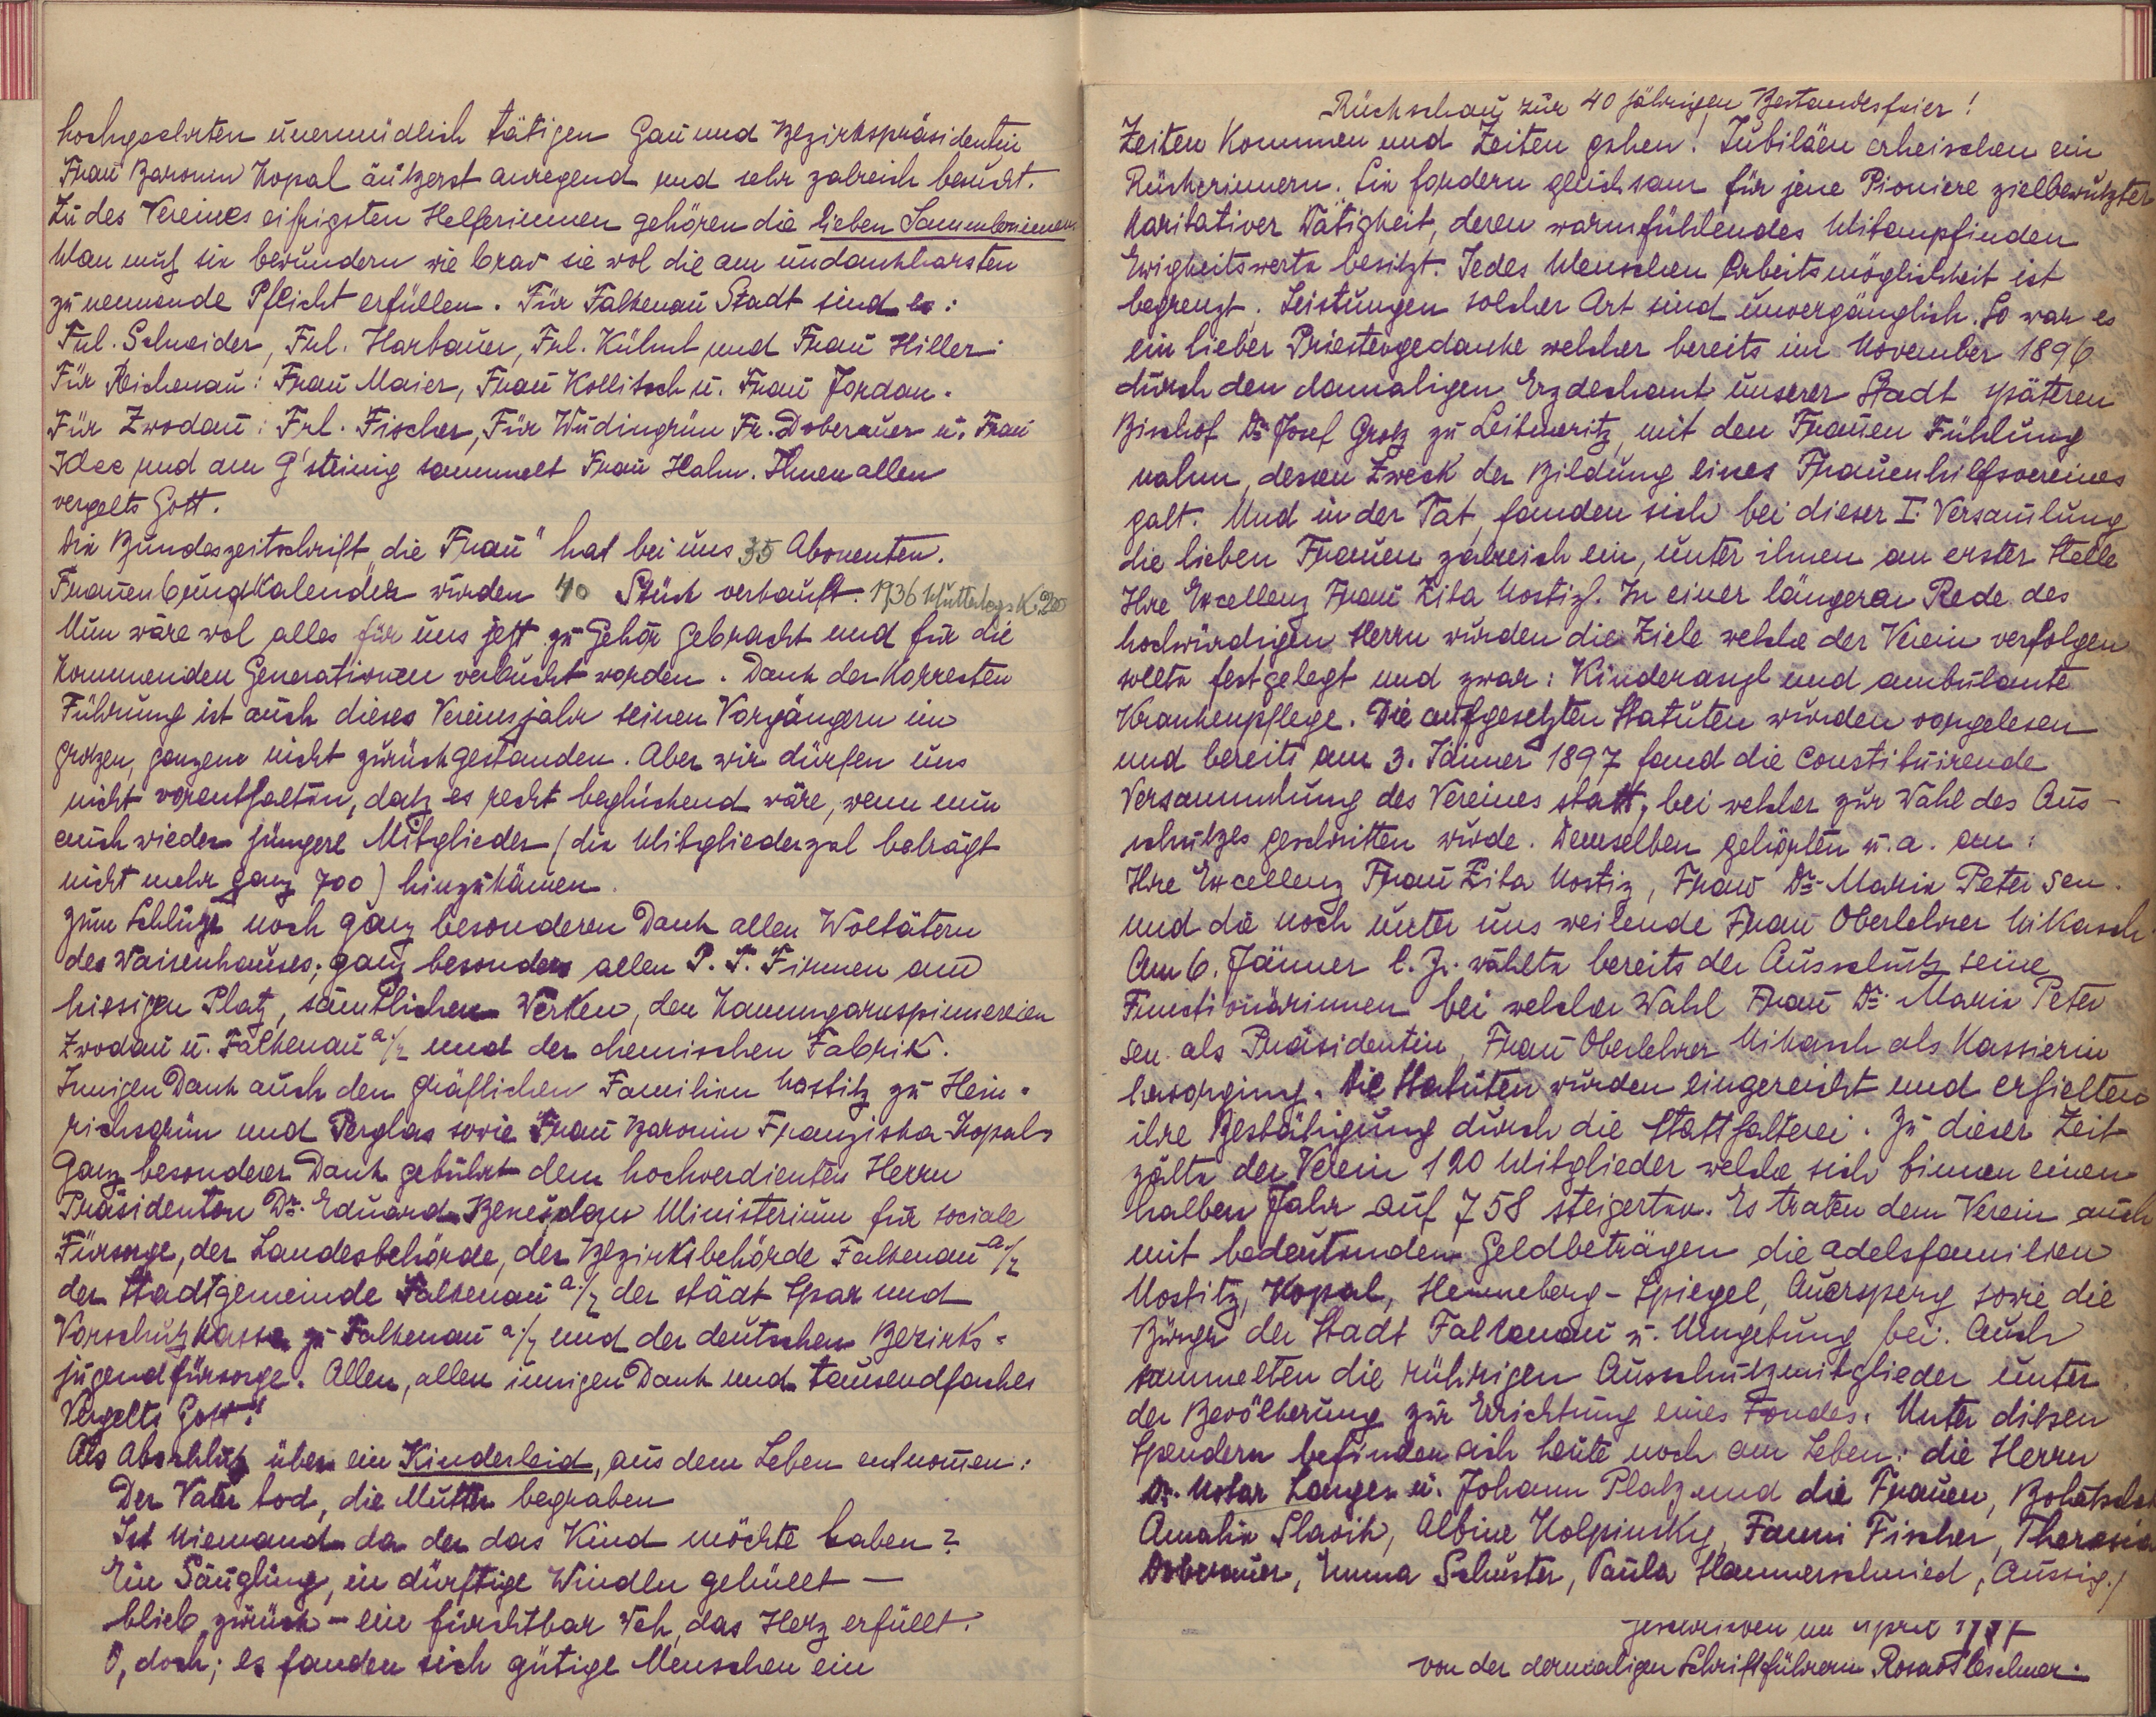 hochgeehrten unermüdlich tätigen Gau und Bezirkspräsidentin
Frau Baronin Kopal äußerst anregend und sehr zalreich besucht.
Zu des Vereines eifrigsten Helferinnen gehören die lieben Sammlerinnen.
Man muß sie bewundern wie brav sie wol die am undankbarsten
zu nennende Pflicht erfüllen. Für Falkenau Stadt sind es:
Frl. Schneider, Frl. Harbauer, Frl. Kühnl und Frau Hiller.
Für Reichenau: Frau Maier, Frau Kollitsch u. Frau Jordan.
Für Zwodau: Frl. Fischer, Für Wudingrün Fr. Doberauer u. Frau
Idee und am G'steinig sammelt Frau Hahn. Ihnen allen
vergelts Gott.
Die Bundeszeitschrift die Frau" hat bei uns 35 Abonenten.
Frauenbundkalender wurden 40 Stück verkauft. 1936 Muttertags K. 200
Nun wäre wol alles für uns jetzt zu Gehör gebracht und für die
kommenden Generationen verbucht worden. Dank der korrekten
Führung ist auch dieses Vereinsjahr seinen Vorgängern im
großen, ganzen nicht zurückgestanden. Aber wir dürfen uns
nicht vorenthalten, daß es recht beglückend wäre, wenn nun
auch wieder jüngere Mitglieder (die Mitgliederzal beträgt
nicht mehr ganz 700) hinzukämen.
Zum Schluße noch ganz besonderen Dank allen Woltätern
des Waisenhauses; ganz besonders allen P. T. Firmen am
hiesigen Platz, sämtlichen Werken, den Kammgarnspinnereien
Zwodau u. Falkenau a/E und der chemischen Fabrik.
Innigen Dank auch den gräflichen Familien Nostitz zu Hein-
richsgrün und Perglas sowie Frau Baronin Franziska Kopal
Ganz besonderer Dank gebührt dem hochverdienten Herrn
Präsidenten Dr. Eduard Beneš dem Ministerium für sociale
Fürsorge, der Landesbehörde, der Bezirksbehörde Falkenau a/E
der Stadtgemeinde Falkenau a/E der städt Spar und
Vorschußkasse zu Falkenau a/E und der deutschen Bezirks-
jugendfürsorge. Allen, allen innigen Dank und tausendfaches
Vergelts Gott!"
Als Abschluß über ein Kinderleid, aus dem Leben entnomen:
Der Vater tod, die Mutter begraben
Ist niemand da der das Kind möchte haben?
Ein Säugling, in dürftige Windln gehüllt —
blieb zurück – ein furchtbar Weh, das Herz erfüllt.
O, doch; es fanden sich gütige Menschen ein
Rückschau zur 40 jährigen Bestandesfeier!
Zeiten kommen und Zeiten gehen! Jubiläen erheischen ein
Rückerinnern. Sie fordern gleichsam für jene Pioniere zielbewußter
karitativer Tätigkeit, deren warmfühlendes Mitempfinden
Ewigkeitswerte besitzt. Jedes Menschen Arbeitsmöglichkeit ist
begrenzt. Leistungen solcher Art sind unvergänglich. So war es
ein lieber Priestergedanke welcher bereits im November 1896
durch den damaligen Erzdechant unserer Stadt späteren
Bischof Dr. Josef Groß zu Leitmeritz, mit den Frauen Fühlung
nahm, dessen Zweck der Bildung eines Frauenhilfsvereines
galt. Und in der Tat, fanden sich bei dieser I. Versamlung
die lieben Frauen zalreich ein, unter ihnen an erster Stelle
Ihre Excellenz Frau Zita Nostiz. In einer längeren Rede des
hochwürdigen Herrn wurden die Ziele welche der Verein verfolgen
sollte festgelegt und zwar: Kinderasyl und ambulante
Krankenpflege. Die aufgesetzten Statuten wurden vorgelesen
und bereits am 3. Jänner 1897 fand die constituirende
Versammlung des Vereines statt, bei welcher zur Wahl des Aus-
schußes geschritten wurde. Demselben gehörten u. a. an:
Ihre Excellenz Frau Zita Nostiz, Frau Dr. Marie Peter sen.
und die noch unter uns weilende Frau Oberlehrer Mikasch
Am 6. Jänner l. J. wählte bereits der Ausschuß seine
Functionärinnen bei welcher Wahl Frau Dr. Marie Peter
sen. als Präsidentin, Frau Oberlehrer Mikasch als Kassierin
hervorging. Die Statuten wurden eingereicht und erhielten
ihre Bestätigung durch die Statthalterei. Zu dieser Zeit
zälte der Verein 120 Mitglieder welche sich binnen einen
halben Jahr auf 758 steigerten. Es traten dem Verein auch
mit bedeutenden Geldbeträgen die Adelsfamilien
Nostitz, Kopal, Henneberg-Spiegel, Auersperg sowie die
Bürger der Stadt Falkenau u. Umgebung bei. Auch
sammelten die rührigen Ausschußmitglieder unter
der Bevölkerung zur Errichtung eines Fondes. Unter diesen
Spendern befinden sich heute noch am Leben: die Herrn
Dr. Notar Langer u. Johann Platz und die Frauen,
Amalie Slavik, Albine Kolpinsky, Fanni Fischer, Theresia
Doberauer, Emma Schuster, Paula Hammerschmied, Aussig./
geschrieben im April 1937
von der dermaligen Schriftführerin Rosa